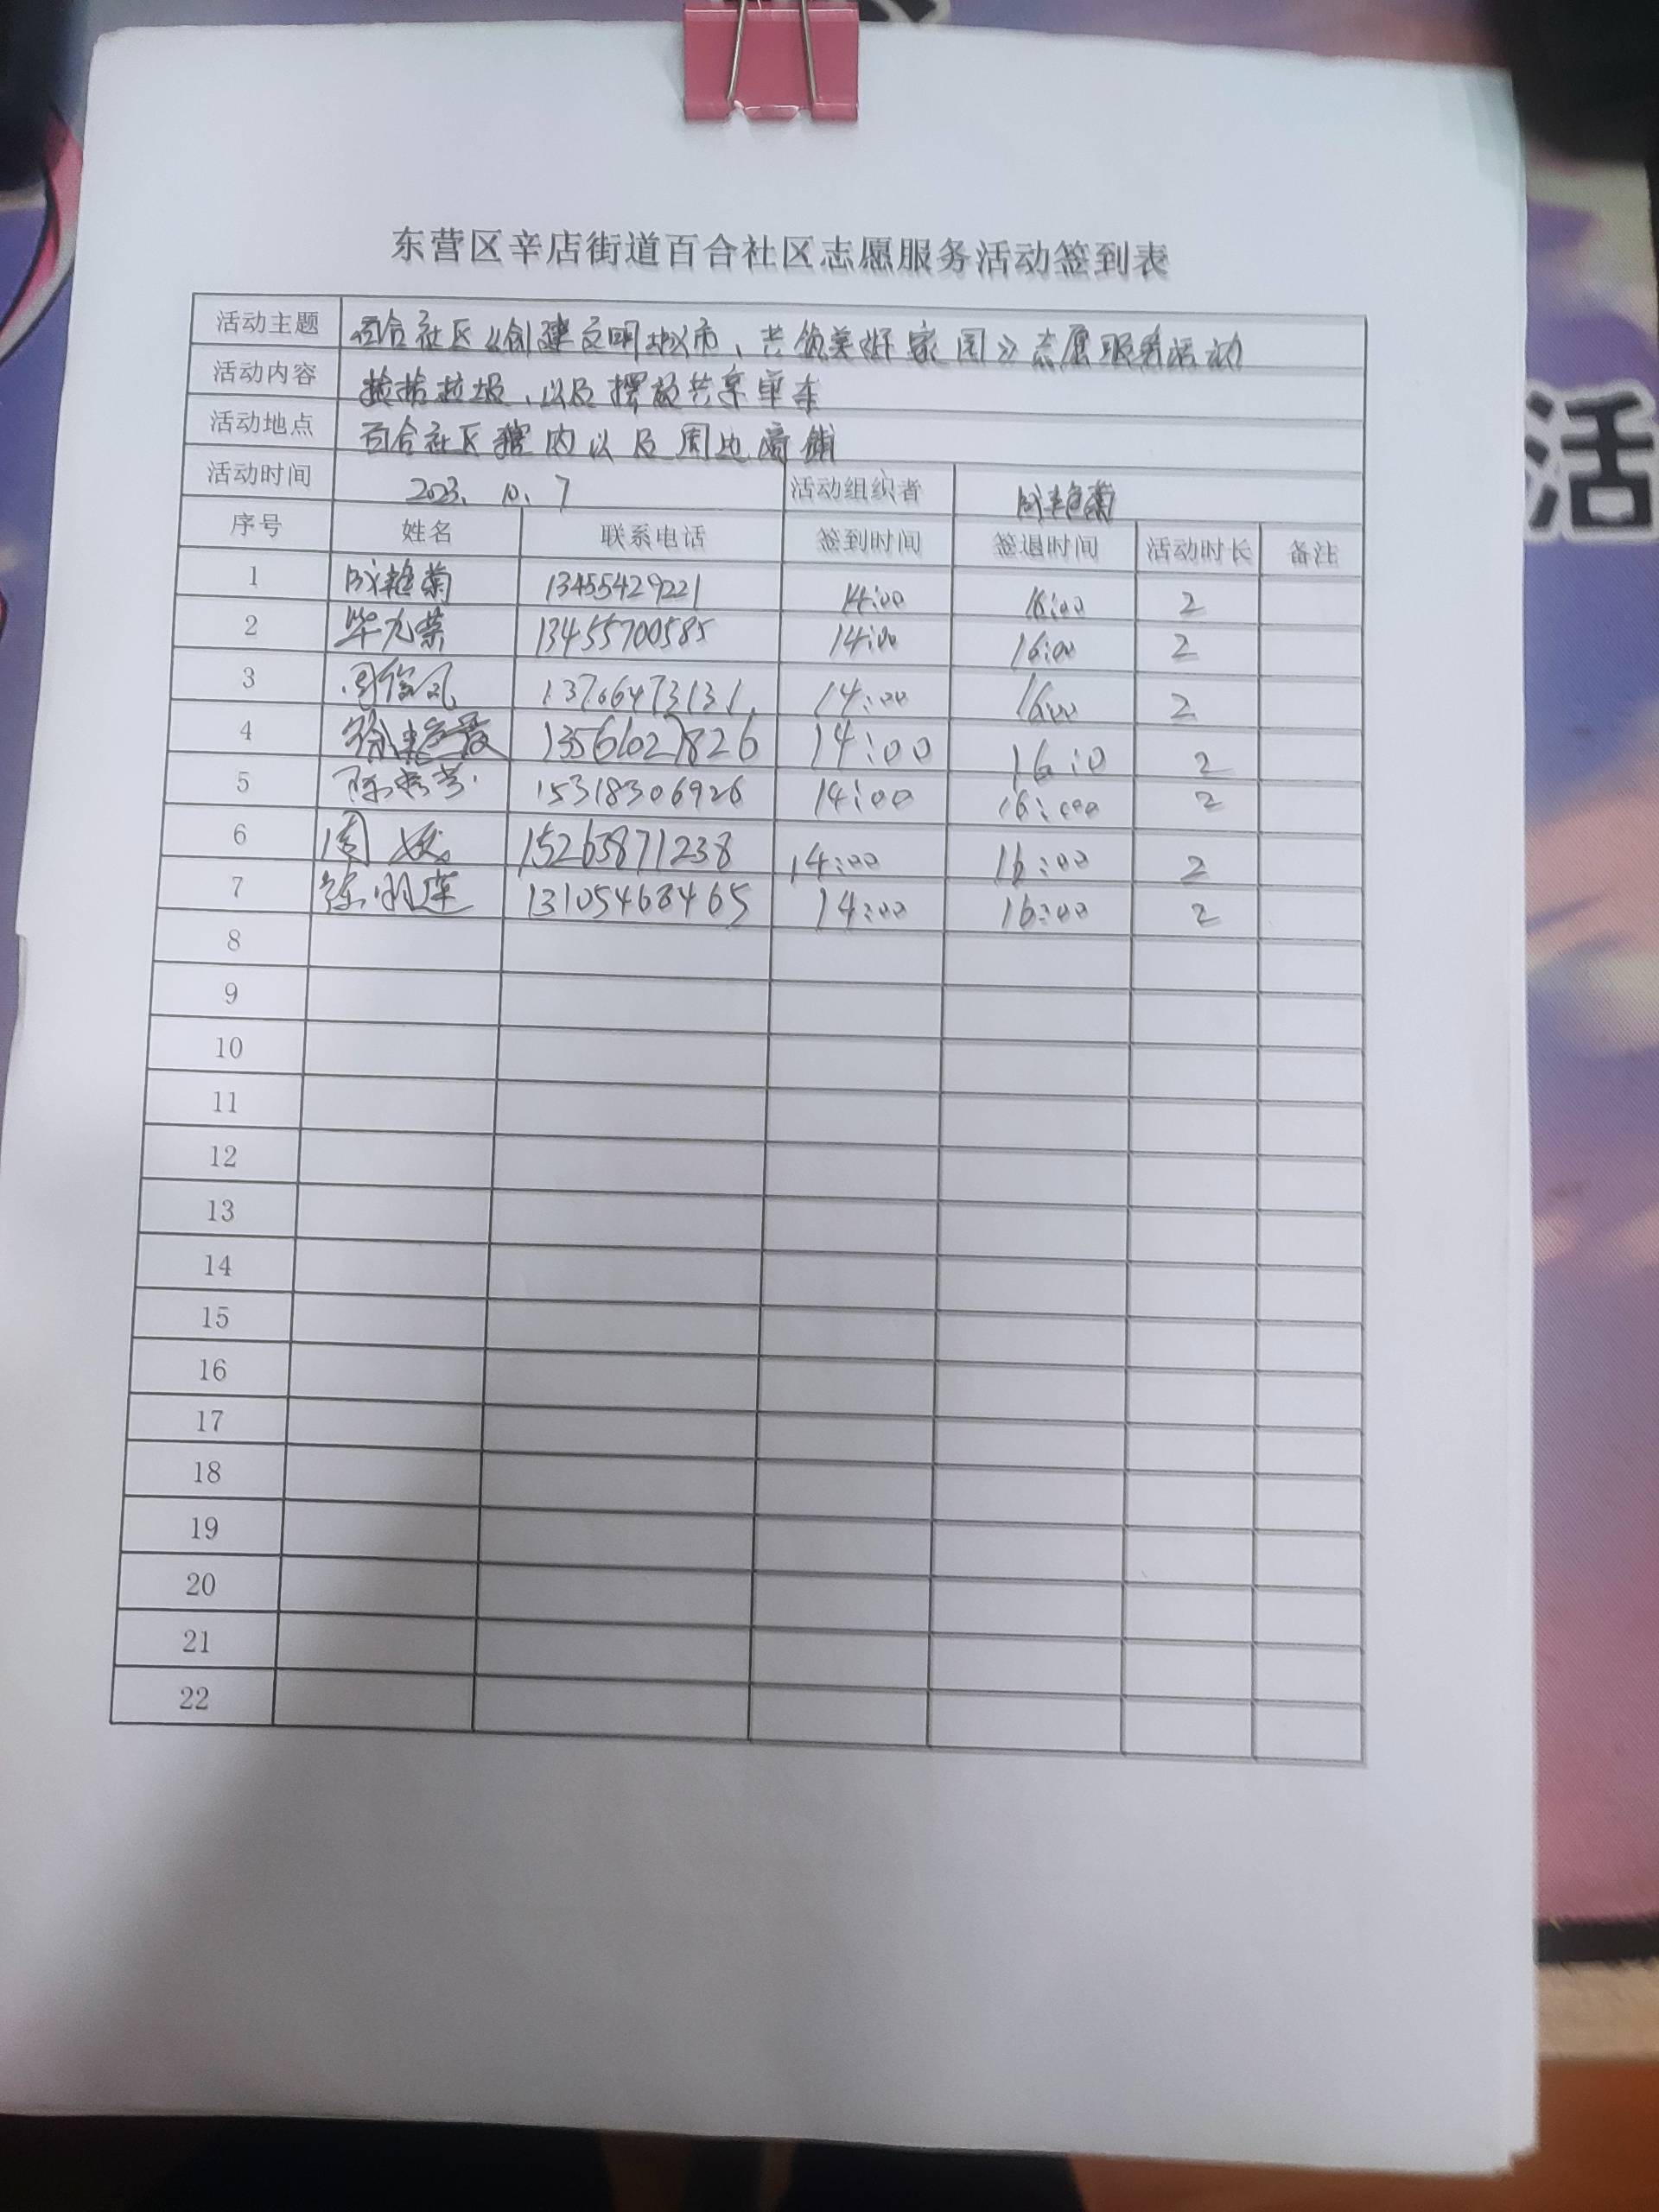 东营区辛店街道百合社区志愿服务活动签到表
活动主题 百合社区《创建文明城市、共筑美好家园》志愿服务活动
活动内容 捡拾垃圾、以及摆放共享单车
活动地点 百合社区辖内以及周边商铺
活动时间 2023、10、7 活动组织者 成艳菊
序号 姓名 联系电话 签到时间 签退时间 活动时长 备注
1 成艳菊 13455429221 14:00 16:00 2
2 毕九荣 13455700585 14:00 16:00 2
3 周俊凤 13706473131 14:00 1600 2
4 徐艳霞 13561027826 14:00 16:0 2
5 陈秀芳 15318306926 14:00 16:000 2
6 周 15263871238 14:00 16:00 2
7 莲 13105468465 14:00 16:00 2
8
9
10
11
12
13
14
15
16
17
18
19
20
21
22
活